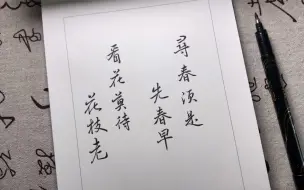 尋春须是
先春早
看花莫待
花枝老